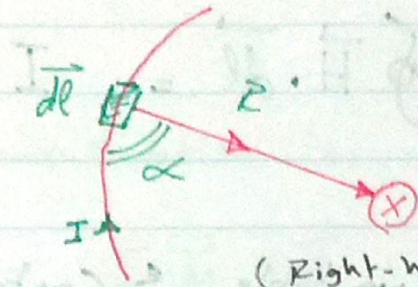 dl
R
α
I
×
(Right-h